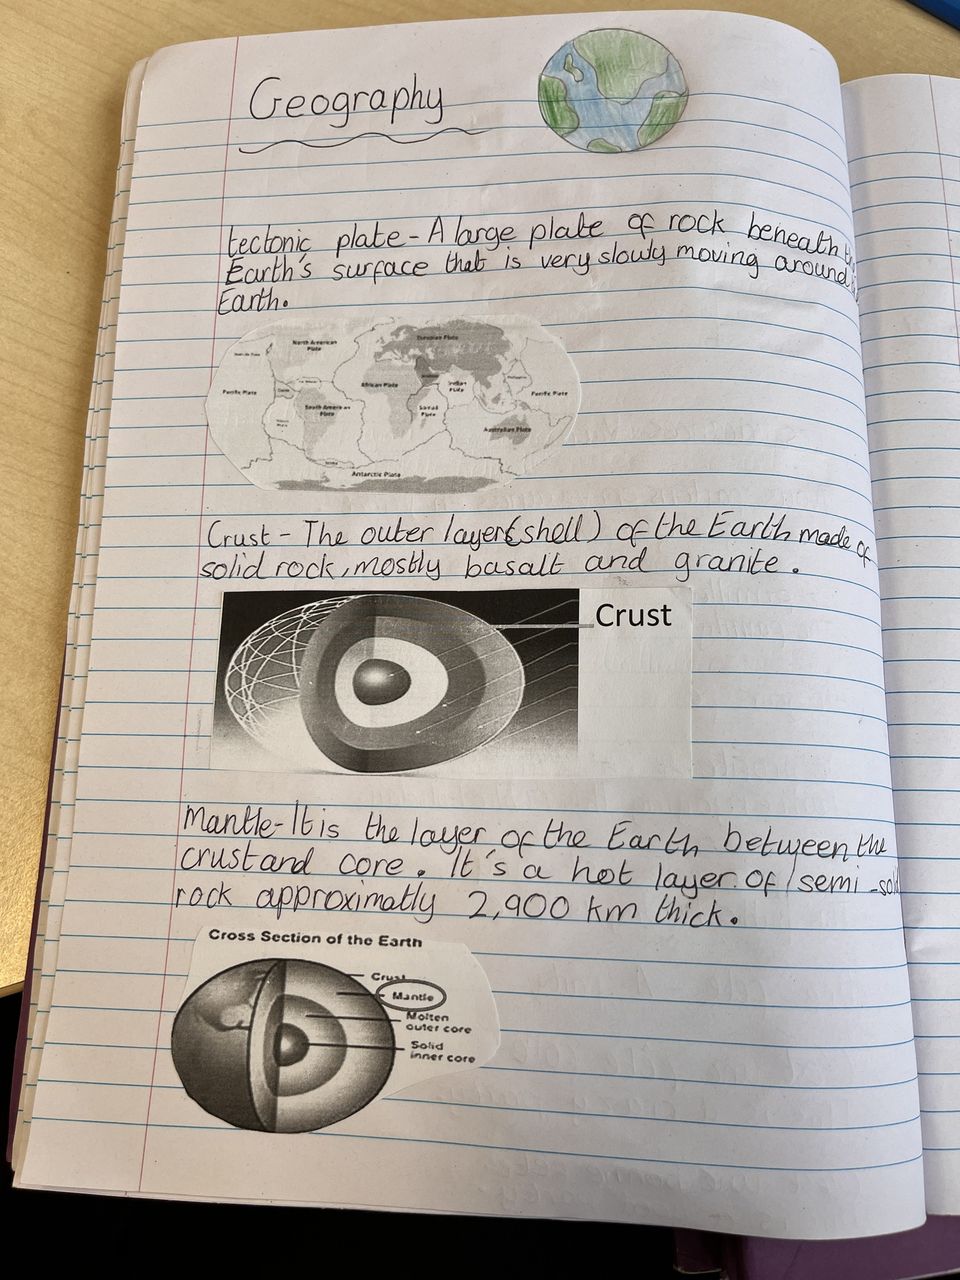 Geography
tectonic plate - A large plate of rock beneath
Earth's surface that is very slowly moving around
Earth.
North American
Plate
Eurasian Plate
Pacific Plate
African Plate
Indian
Plate
Pacific Plate
South American
Plate
Somali
Plate
Australian Plate
Antarctic Plate
Crust - The outer layer (shell) of the Earth made of
solid rock, mostly basalt and granite.
Crust
Mantle - It is the layer of the Earth between the
crust and core. It's a hot layer of semi-
rock approximatly 2,900 km thick.
Cross Section of the Earth
Crust
Mantle
Molten
outer core
Solid
inner core